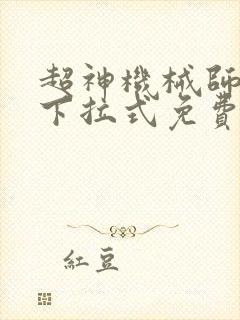 超神機械師
下拉式免費
紅豆